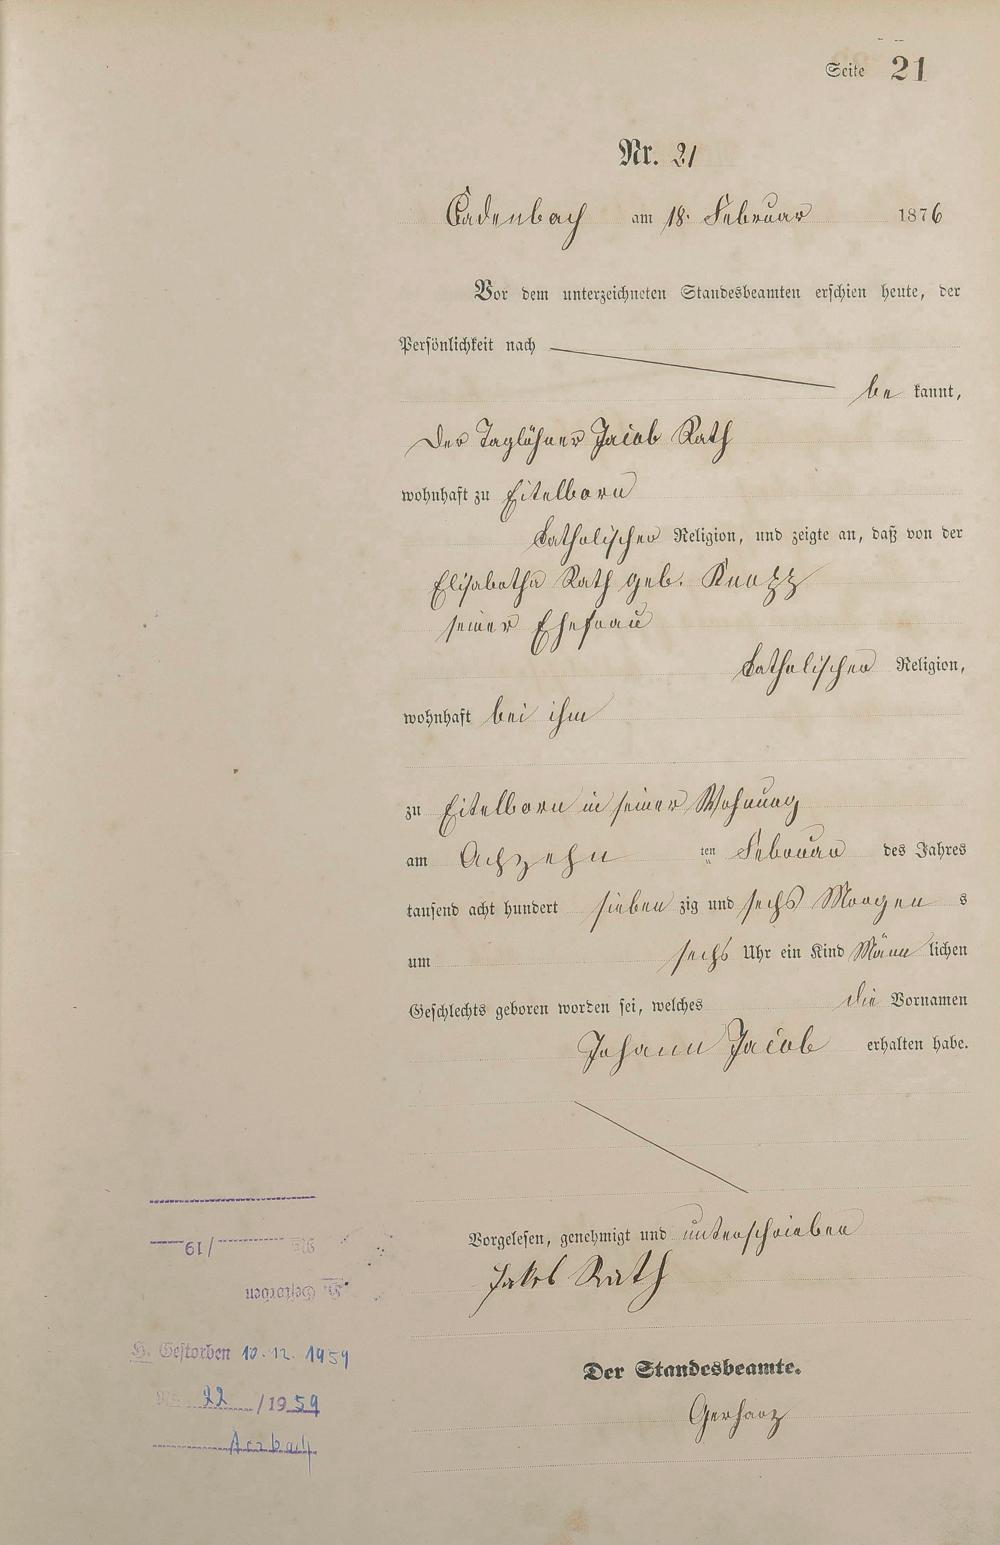 Seite 21
Nr. 21
Cadenbach am 18. Februar 1876
Vor dem unterzeichneten Standesbeamten erschien heute, der
Persönlichkeit nach
be kannt,
der Taglöhner Jacob Rath
wohnhaft zu Eitelborn
katholischer Religion, und zeigte an, daß von der
Elisabetha Rath geb. Knopp
seiner Ehefrau
katholischer Religion,
wohnhaft bei ihm
zu Eitelborn in seiner Wohnung
am Achzehn ten Februar des Jahres
tausend acht hundert sieben zig und sechs Morgen s
um sechs Uhr ein Kind Männ lichen
Geschlechts geboren worden sei, welches die Vornamen
Johann Jacob erhalten habe.
Vorgelesen, genehmigt und unterschrieben
Jakob Rath
Der Standesbeamte.
Gerharz
Nr. /19
H. Gestorben
H. Gestorben 10.12. 1959
Nr. 22 /1959
Arzbach